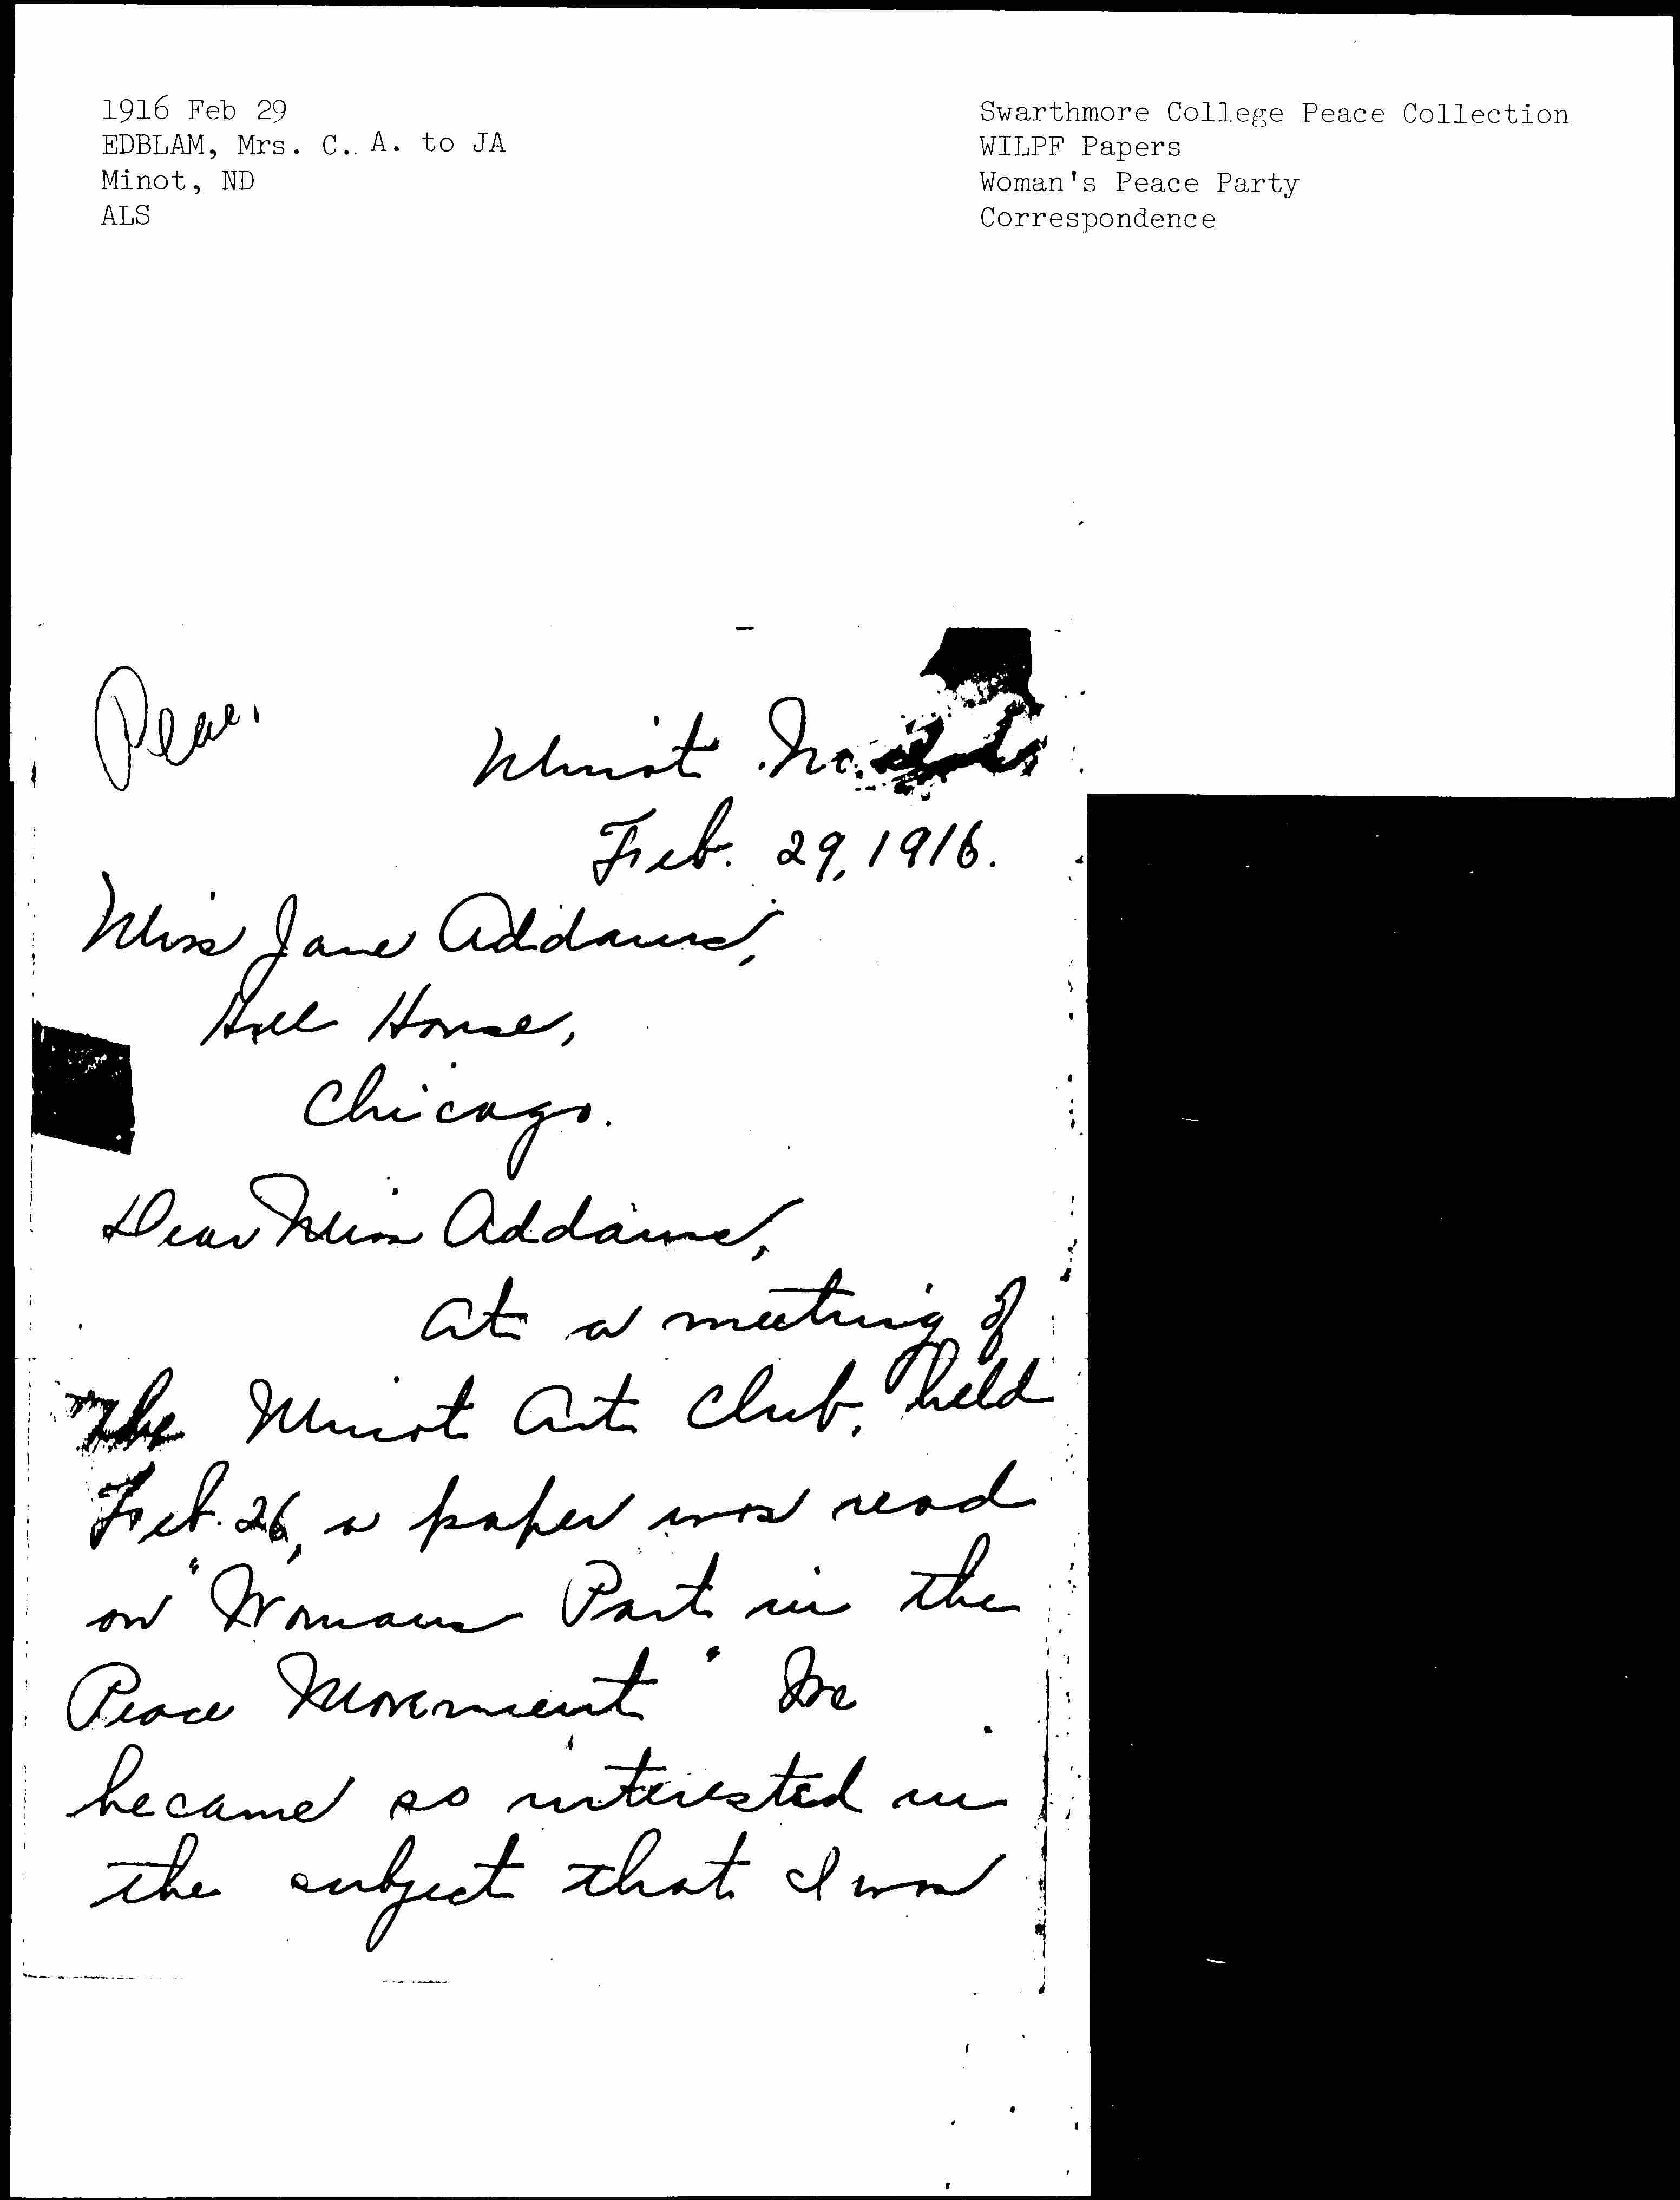 1916 Feb 29
EDBLAM, Mrs. C. A. to JA
Minot, ND
ALS
Swarthmore College Peace Collection
WILPF Papers
Woman's Peace Party
Correspondence
Peace.
Minot No.
Feb. 29, 1916.
Miss Jane Addams,
Hull House,
Chicago.
Dear Miss Addams,
At a meeting of
the Minot Art Club, held
Feb. 26, a paper was read
on "Womans Part in the
Peace Movement" We
became so interested in
the subject that I was